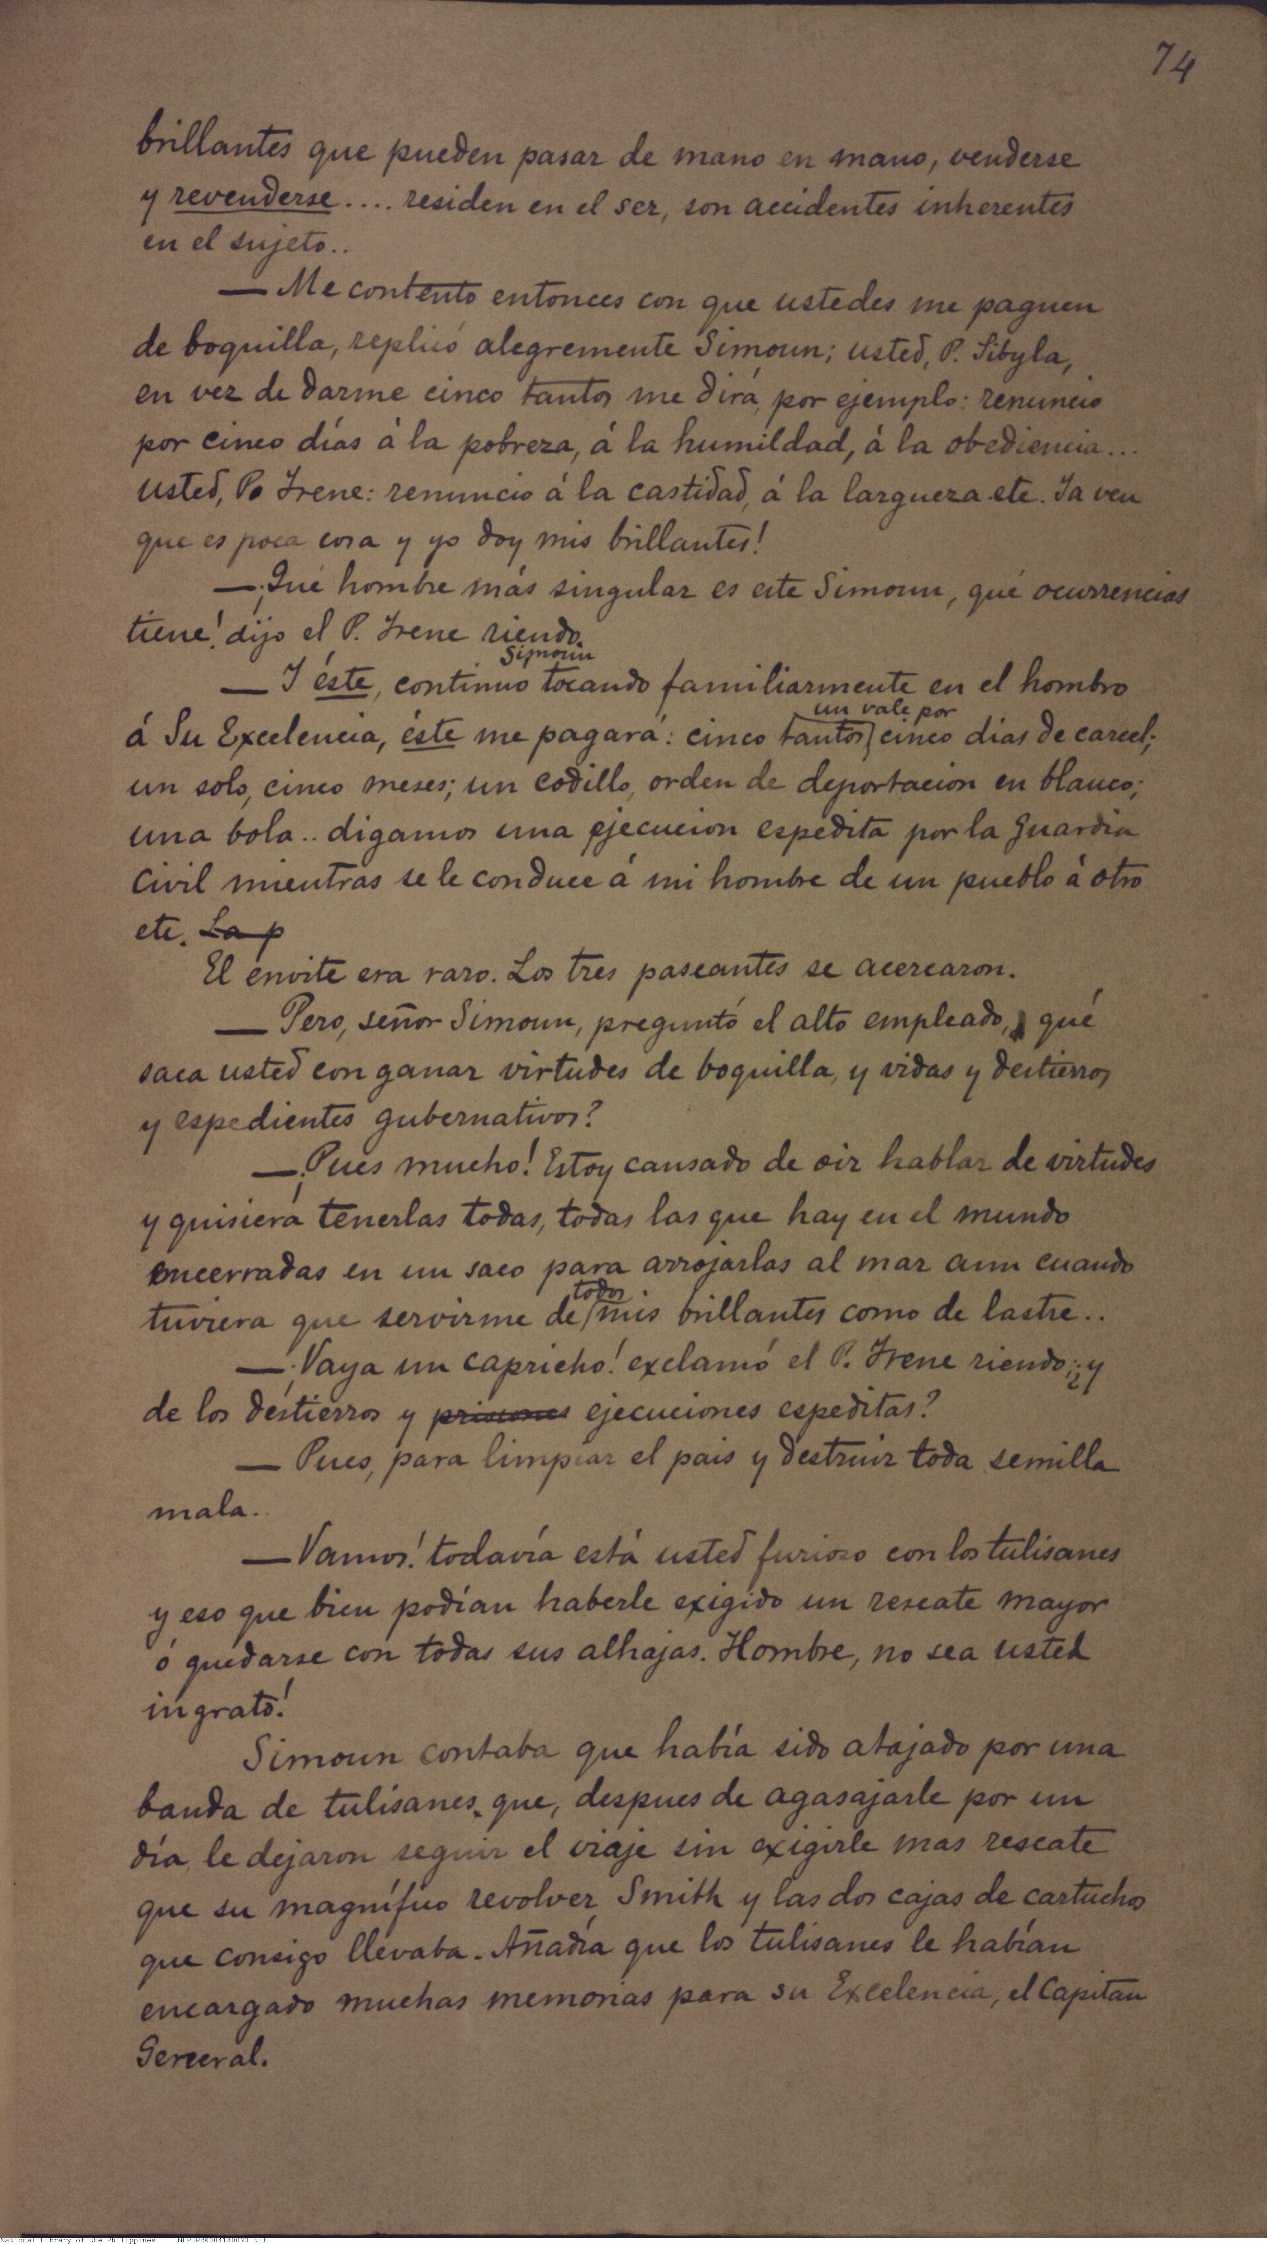 74
brillantes que pueden pasar de mano en mano, venderse
y revenderse.... residen en el ser, son accidentes inherentes
en el sujeto..
— Me contento entonces con que ustedes me paguen
de boquilla, replicó alegremente Simoun; usted, P. Sibyla,
en vez de darme cinco tantos me dirá, por ejemplo: renuncio
por cinco días á la pobreza, á la humildad, á la obediencia...
usted, P. Irene: renuncio á la castidad, á la largueza etc. Ya ven
que es poca cosa y yo doy mis brillantes!
— ¡Qué hombre más singular es este Simoun, qué ocurrencias
tiene! dijo el P. Irene riendo.
Simoun
— Y éste, continuo tocando familiarmente en el hombro
un vale por
á Su Excelencia, éste me pagará: cinco tantos, cinco dias de carcel;
un solo, cinco meses; un codillo, orden de deportacion en blanco;
una bola.. digamos una ejecucion espedita por la Guardia
Civil mientras se le conduce á mi hombre de un pueblo á otro
etc. La p
El envite era raro. Los tres paseantes se acercaron.
— Pero, señor Simoun, preguntó el alto empleado, qué
saca usted con ganar virtudes de boquilla, y vidas y destierros
y espedientes gubernativos?
— ¡Pues mucho! Estoy cansado de oir hablar de virtudes
y quisiera tenerlas todas, todas las que hay en el mundo
encerradas en un saco para arrojarlas al mar aun cuando
todos
tuviera que servirme de mis brillantes como de lastre..
— ¡Vaya un capricho! exclamó el P. Irene riendo; ¿y
de los destierros y prisiones ejecuciones espeditas?
— Pues, para limpiar el pais y destruir toda semilla
mala..
— Vamos! todavía está usted furioso con los tulisanes
y eso que bien podían haberle exigido un rescate mayor
ó quedarse con todas sus alhajas. Hombre, no sea usted
ingrato!
Simoun contaba que había sido atajado por una
banda de tulisanes que, despues de agasajarle por un
día, le dejaron seguir el viaje sin exigirle mas rescate
que su magnífico revolver Smith y las dos cajas de cartuchos
que consigo llevaba. Añadía que los tulisanes le habían
encargado muchas memorias para su Excelencia, el Capitan
General.